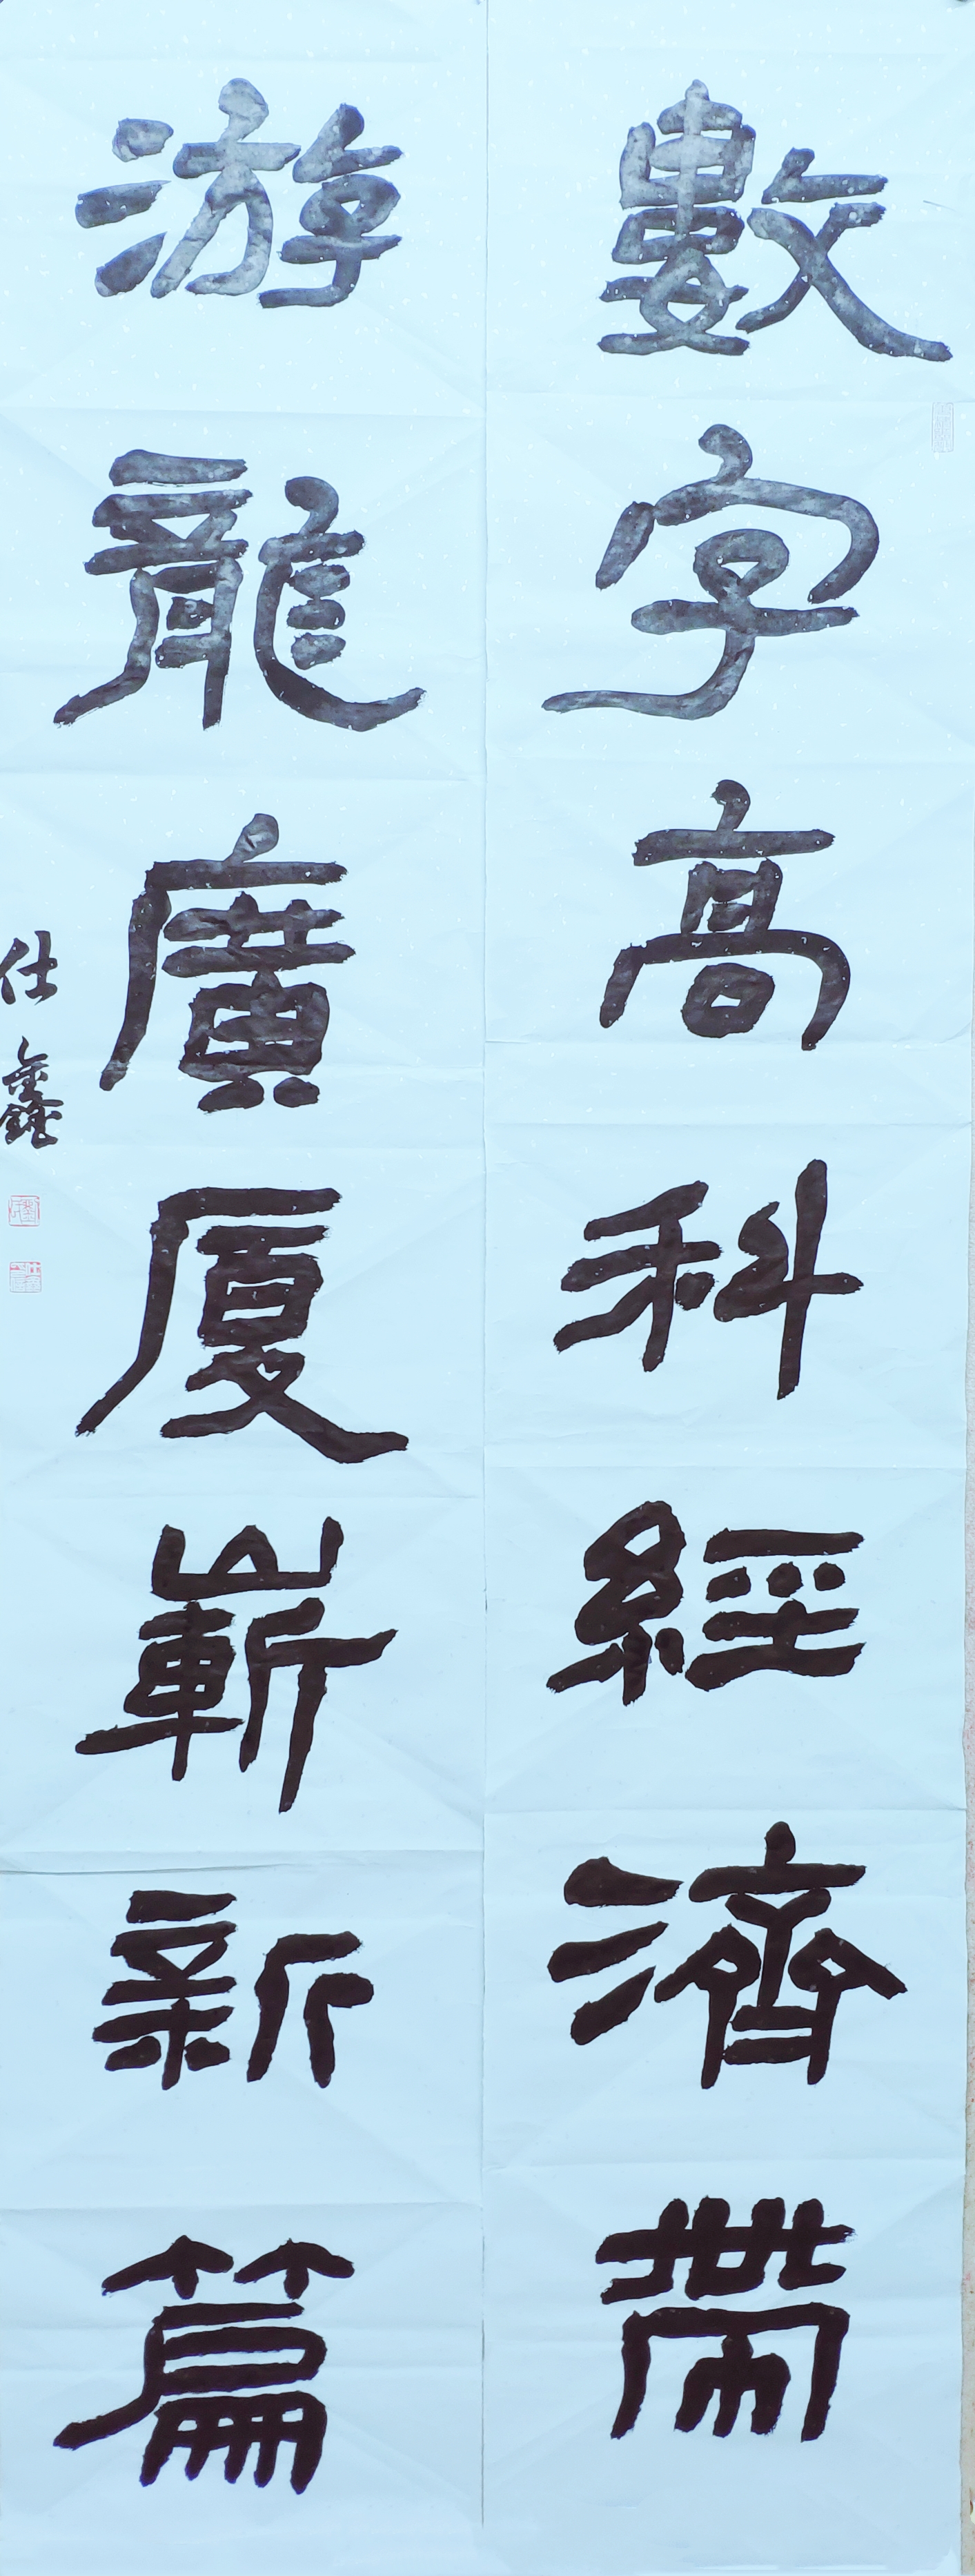 數字高科經濟帶
游龍廣厦嶄新篇
仕鑫